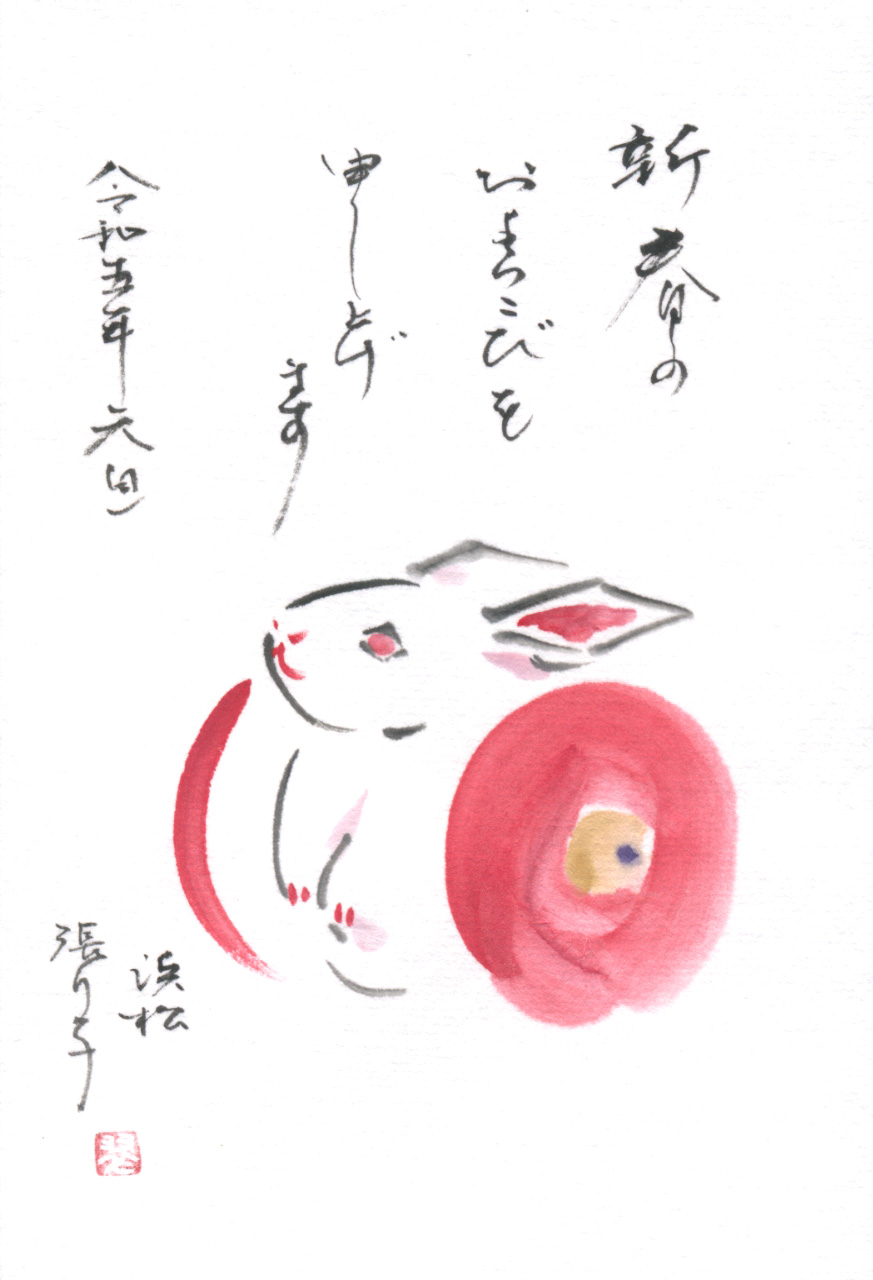 新春の
およろこびを
申し上げ
ます
令和五年元旦
浜松
張り子